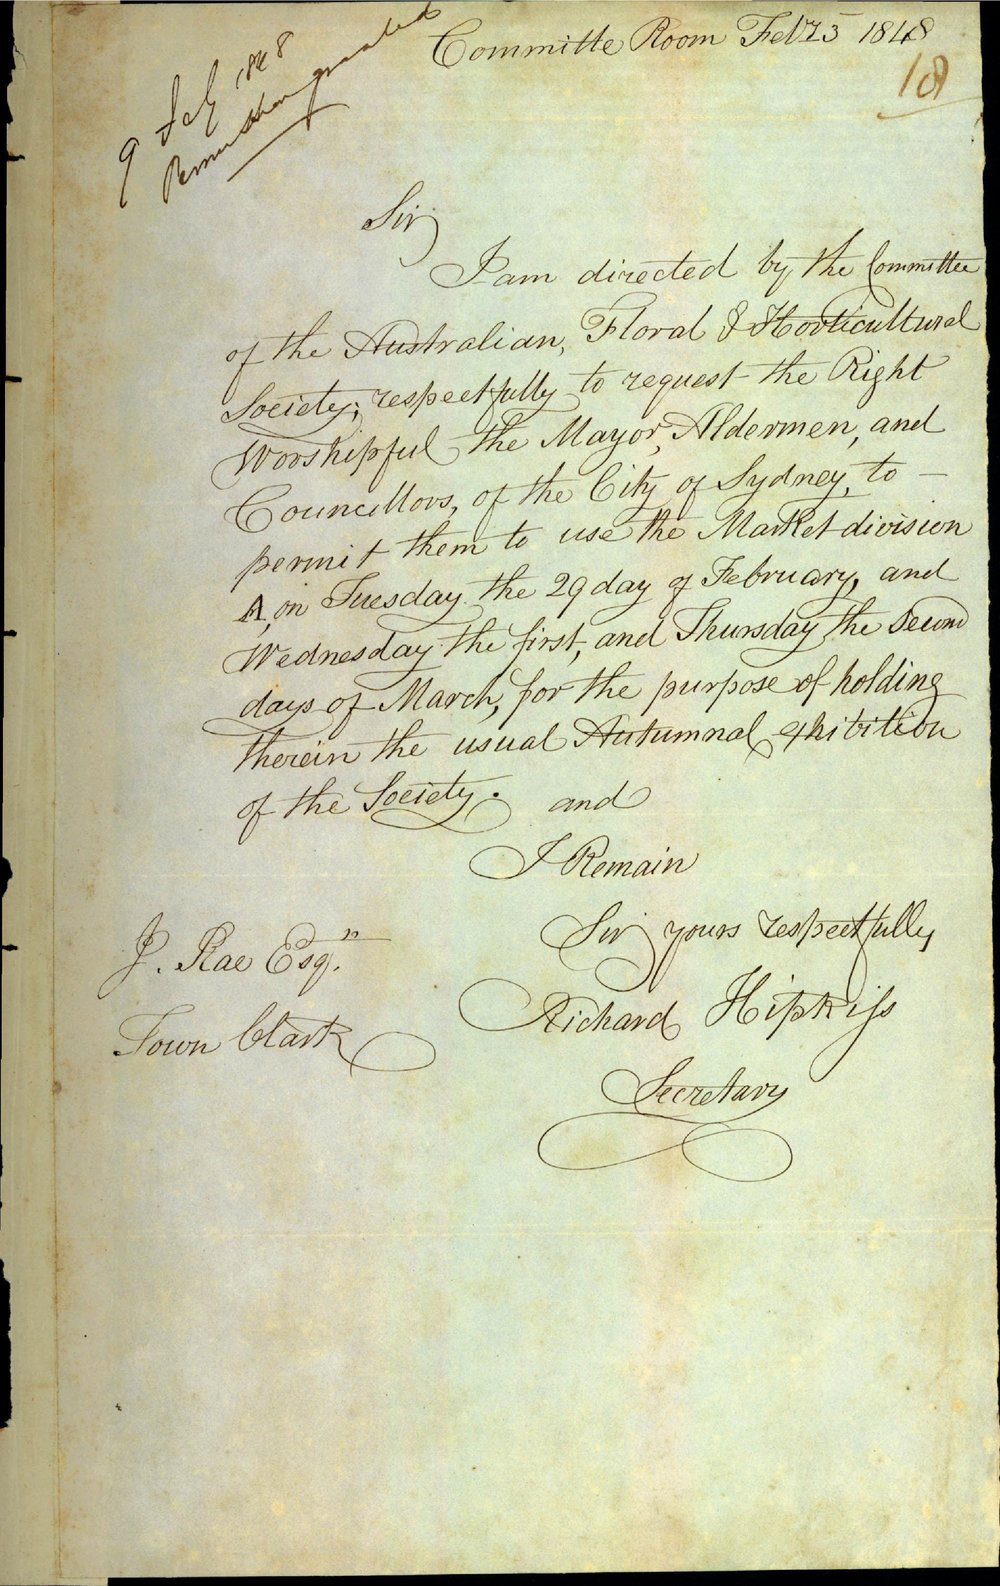 Committe Room Feby 5 1848
18
9 Feby 1848
Permission granted
Sir,
I am directed by the Committee
of the Australian, Floral & Horticultural
Society, respectfully to request the Right
Worshipful the Mayor, Aldermen, and
Councillors, of the City of Sydney, to —
permit them to use the Market division
A, on Tuesday the 29 day of February, and
Wednesday the first, and Thursday the second
days of March, for the purpose of holding
therein the usual Autumnal exhibition
of the Society. and
I Remain
Sir yours respectfully
Richard Hipkiss
Secretary
J. Rae Esqr.
Town Clark